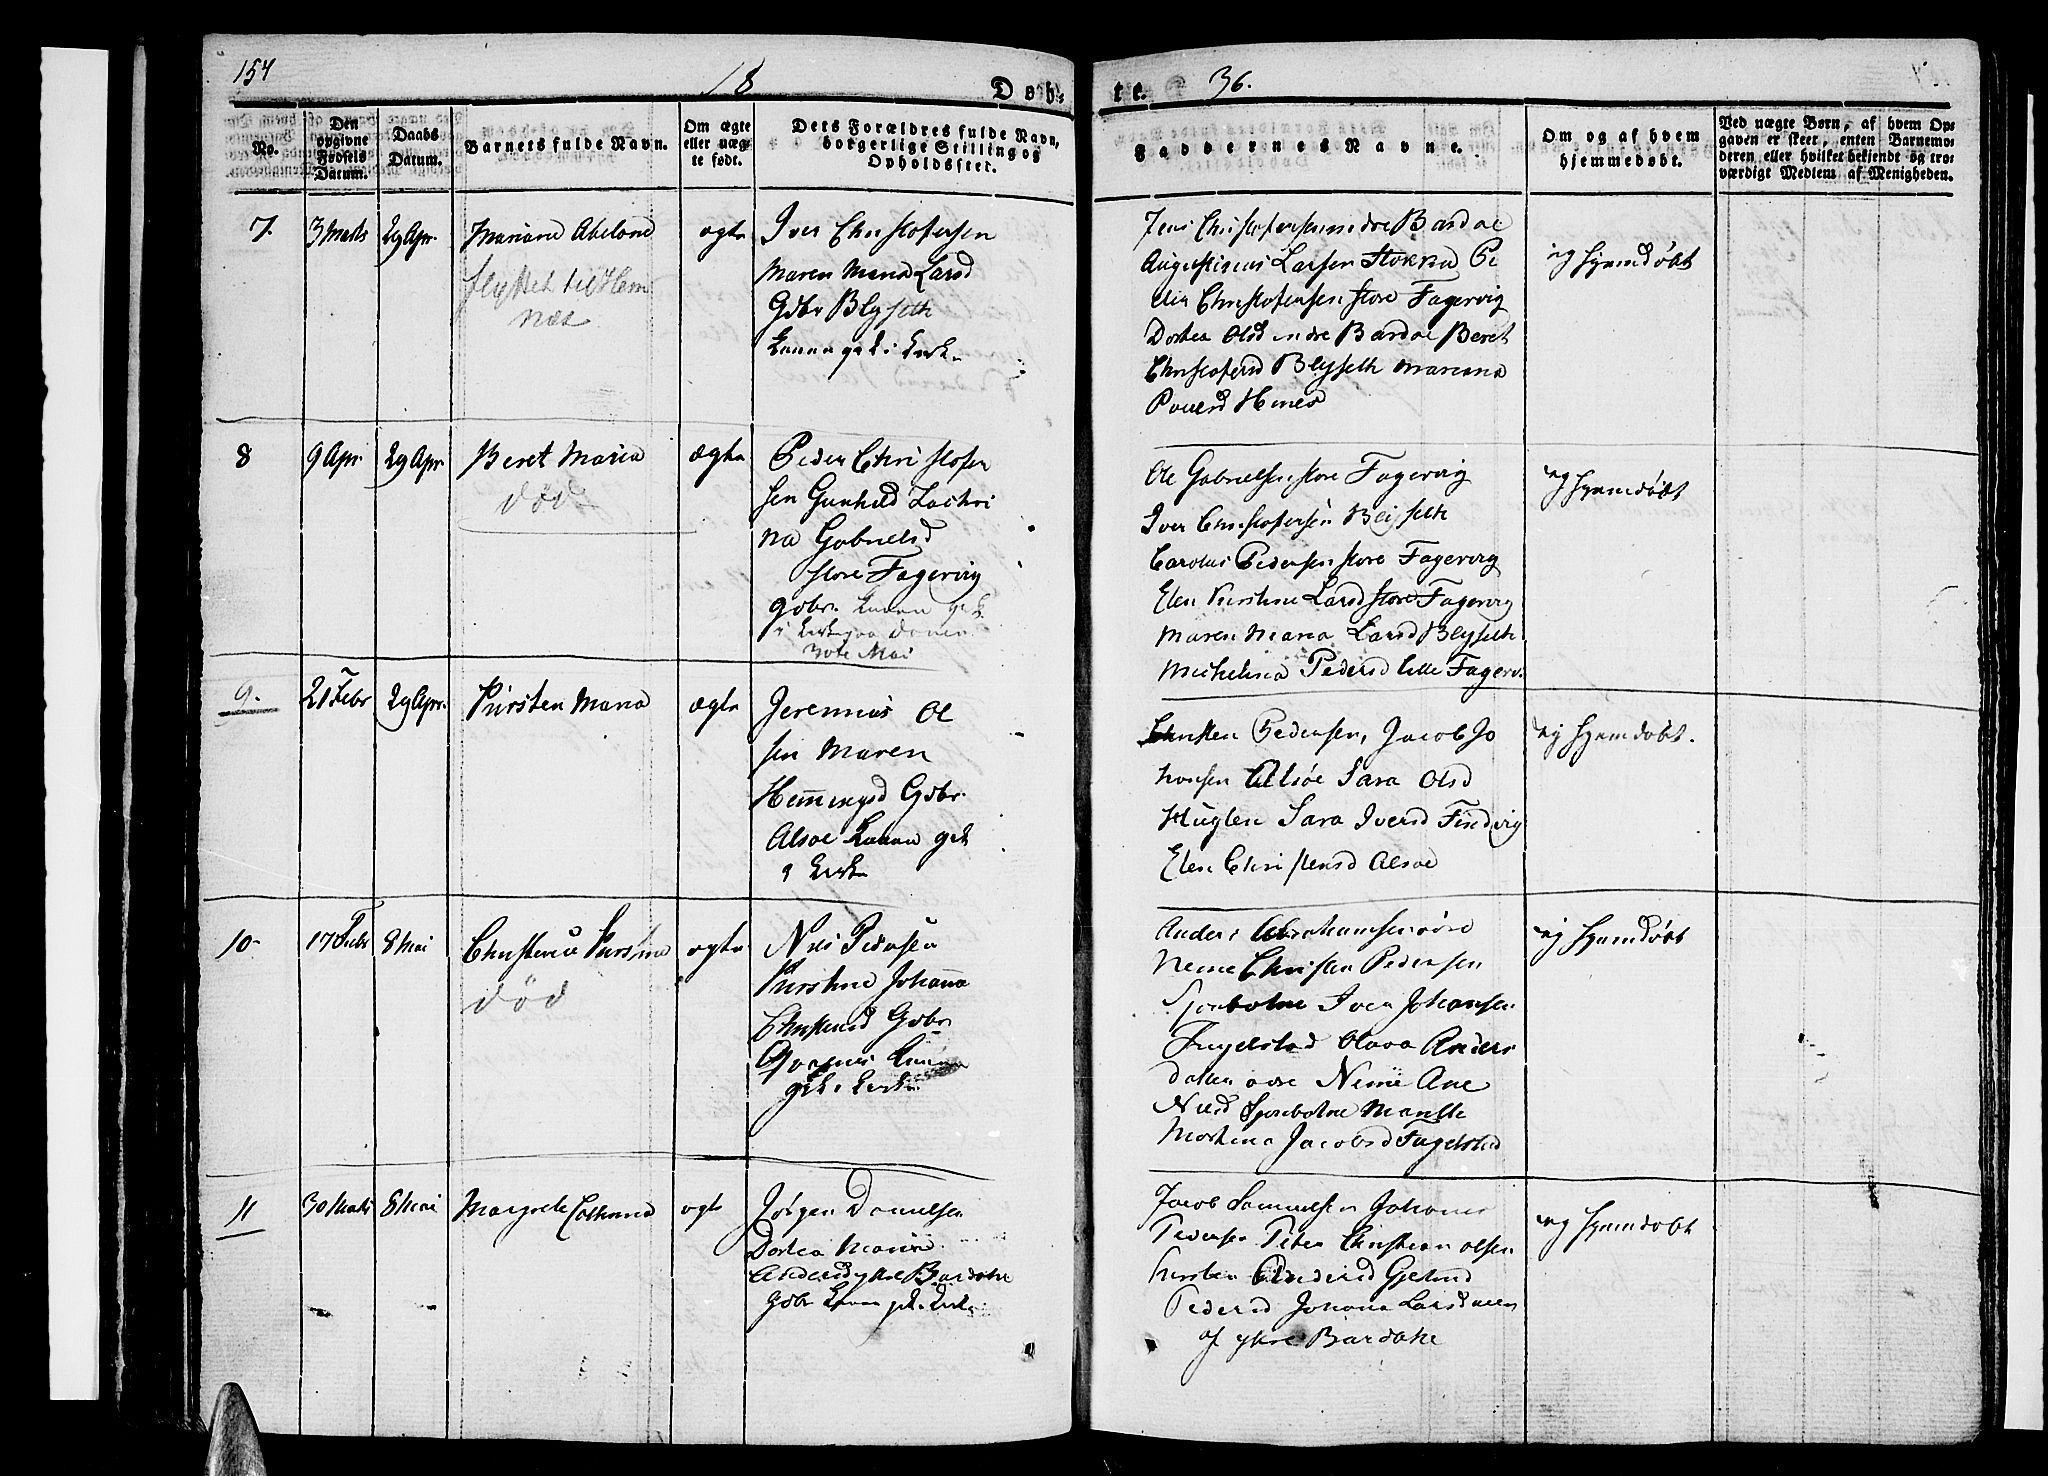 154
18
36.
Døb-
te.
No.
Den
opgivne
Fødsels
Datum.
Daabs
Datum.
Barnets fulde Navn.
Om ægte
eller uæg-
te født.
Dets Forældres fulde Navn,
borgerlige Stilling og
Opholdssted.
Faddernes Navne.
Om og af hvem
hjemmedøbt.
Ved uægte Børn, af hvem Op-
gaven er skeet, enten Barnemo-
deren eller hvilket bekjendt og tro-
værdigt Medlem af Menigheden.
7.
3 Marts
29 Apr.
Mariane Abelone
flyttet til Hem
næs
ægte
Iver Christofersen
Maren Maria Larsd
Gdbr Blyseth
Konen gik i Kirke
Jens Christofersen indre Bardoe
Augustinus Larsen Stokka Pe
der Christofersen store Fagervig
Dortea Olsd indre Bardoe Beret
Christofersd Blyseth Mariana
Povelsd
ei hjemdøbt
8
9 Apr.
29 Apr.
Beret Maria
død
ægte
Peder Christofer
sen Gunhild Zachri
na Gabrielsd
store Fagervig
gdbr. Konen gik
i Kirke paa Dønnes
30te Mai
Ole Gabrielsen store Fagervig
Iver Christofersen Blyseth
Carolus Pedersen store Fagervig
Elen Kirstine Larsd store Fagervig
Maren Maria Larsd Blyseth
Michelina Pedersd lille Fagerv.
ei hjemdøbt
9.
21 Febr
29 Apr.
Kirsten Maria
ægte
Jeremias Ol
sen Maren
Hemingsd Gdbr.
Alsoe Konen gik
i Kirke
Christen Pedersen, Jacob Jo
hansen Alsøe Sara Olsd
Huglen Sara Iversd Findvig
Elen Christensd Alsoe
ei hjemdøbt.
10.
17 Febr
8 Mai
Christense Kirstine
død
ægte
Nils Pedersen
Kirstine Johanna
Christensd Gdbr
Konen
gik i Kirke
Anders Abrahamsen øvre
Neme Christen Pedersen
Sjonbotne Iver Johansen
Fugelstad Olava Anders
datter øvre Neme Ane
Nilsd Sjonbotne
Martina Jacobsd Fugelstad
ei hjemdøbt
11
30 Marts
8 Mai
Margrete
ægte
Jørgen Danielsen
Dortea Marie
Andersd ytre Bardoe
Gdbr Konen gik i Kirke
Jacob Samuelsen Johannes
Pedersen Peter Christian Olsen
Kirsten Andersd Gjertrud
Pedersd Johana Larsd
af ytre Bardoe
ei hjemdøbt